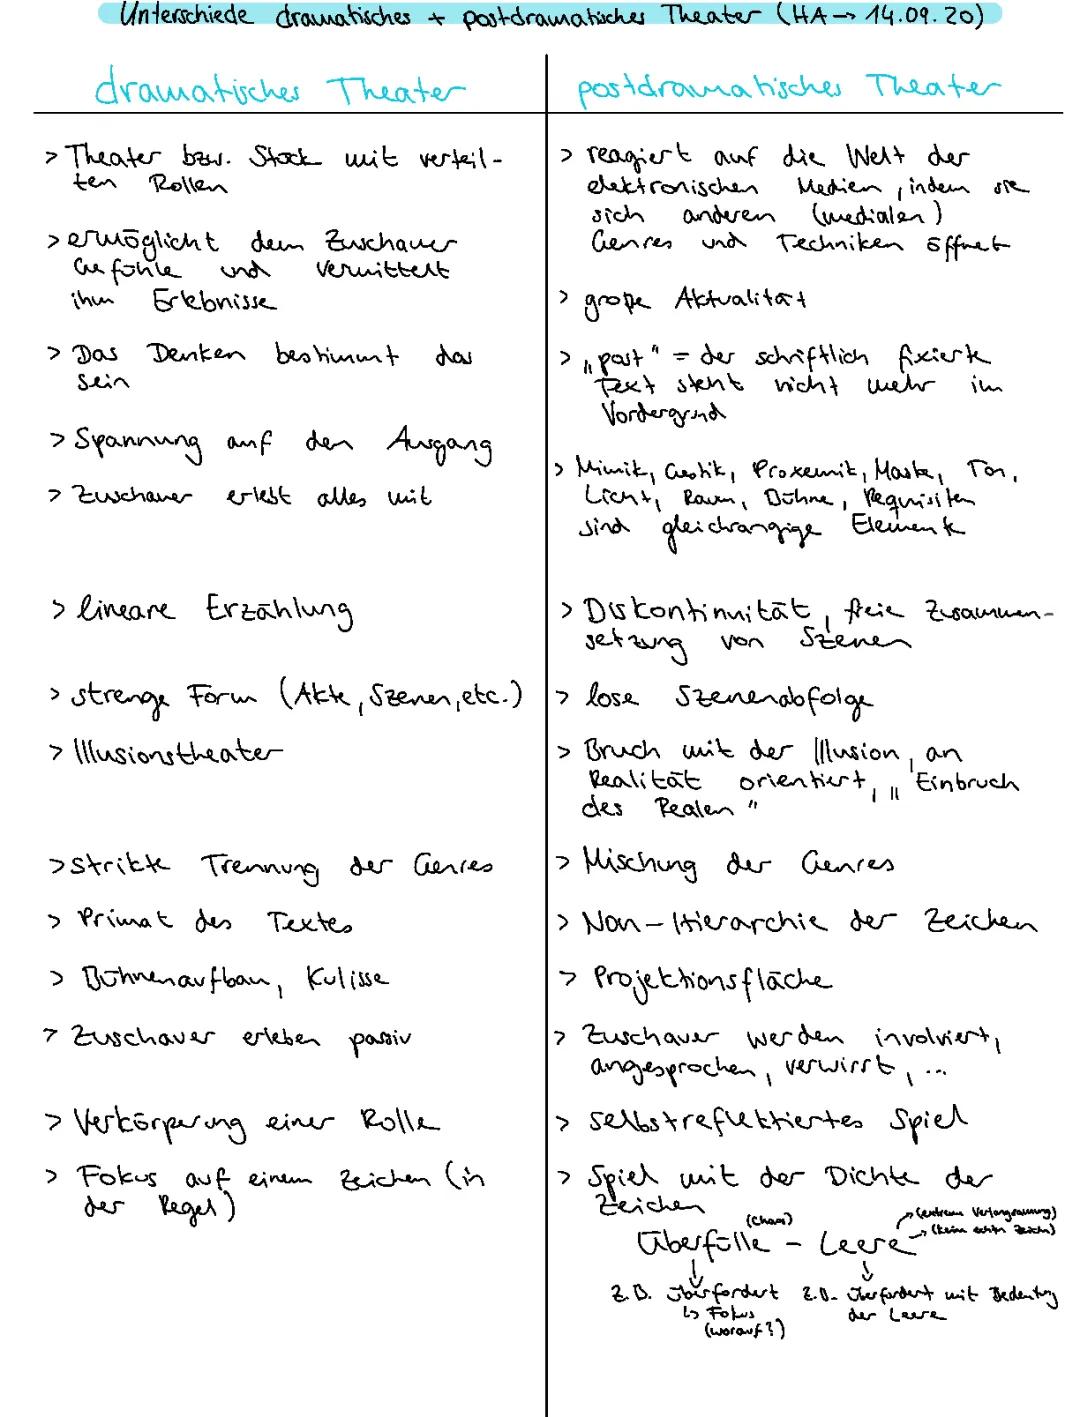 Unterschiede dramatisches + postdramatisches Theater (HA → 14.09.20)
dramatisches Theater
> Theater bzw. Stück mit verteil-
ten Rollen
> ermöglicht dem Zuschauer
Gefühle und vermittelt
ihm Erlebnisse
> Das Denken bestimmt das
Sein
> Spannung auf den Ausgang
> Zuschauer erlebt alles mit
> lineare Erzählung
> strenge Form (Akte, Szenen, etc.)
> Illusionstheater
> strikte Trennung der Genres
> Primat des Textes
> Bühnenaufbau, Kulisse
> Zuschauer erleben passiv
> Verkörperung einer Rolle
> Fokus auf einem Zeichen (in
der Regel)
postdramatisches Theater
> reagiert auf die Welt der
elektronischen Medien, indem sie
sich anderen (medialen)
Genres und Techniken öffnet
> große Aktualität
> „post" = der schriftlich fixierte
Text steht nicht mehr im
Vordergrund
> Mimik, Gestik, Proxemik, Maske, Ton,
Licht, Raum, Bühne, Requisiten
sind gleichrangige Elemente
> Diskontinuität, freie Zusammen-
setzung von Szenen
> lose Szenenabfolge
> Bruch mit der Illusion, an
Realität orientiert, „Einbruch
des Realen"
> Mischung der Genres
> Non-Hierarchie der Zeichen
> Projektionsfläche
> Zuschauer werden involviert,
angesprochen, verwirrt, ...
> selbstreflektiertes Spiel
> Spiel mit der Dichte der
Zeichen
(Chaos)
(extreme Verlangsamung)
(keine echten Zeichen)
Überfülle - Leere
z.B. überfordert
↳ Fokus
(worauf?)
z.B. überfordert mit Bedeutung
der Leere